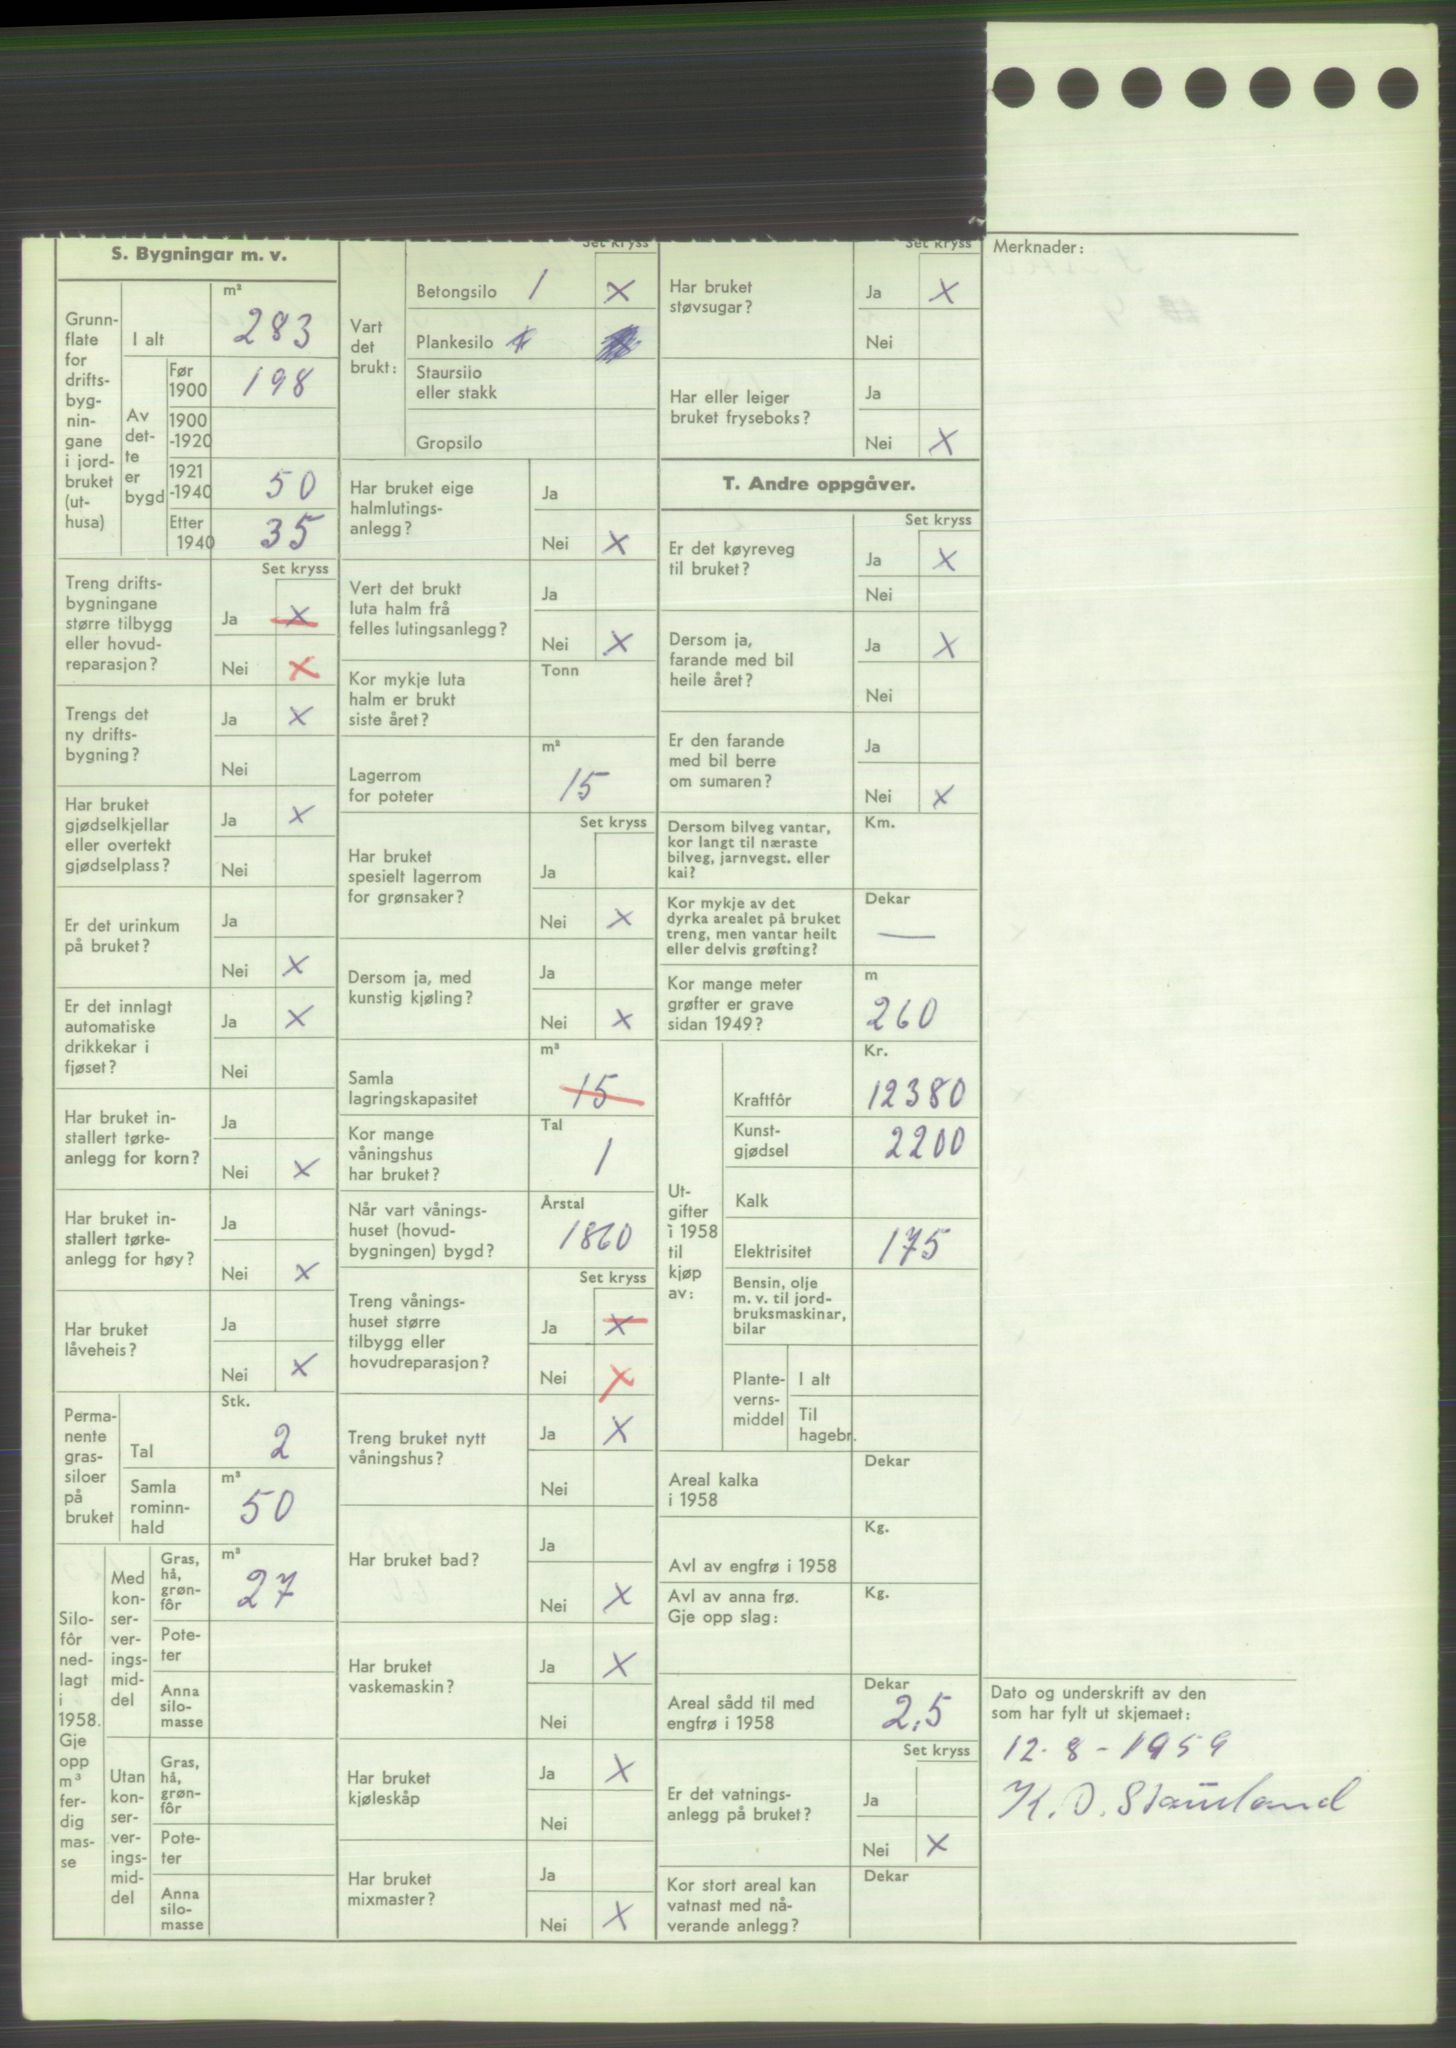 S. Bygningar m. v.
Grunn-
flate
for
drifts-
byg-
nin-
gane
i jord-
bruket
(ut-
husa)
I alt
m²
283
Av
det-
te
er
bygd
Før
1900
198
1900
-1920
1921
-1940
50
Etter
1940
35
Set kryss
Treng drifts-
bygningane
større tilbygg
eller hovud-
reparasjon?
Ja X
Nei X
Trengs det
ny drifts-
bygning?
Ja X
Nei
Har bruket
gjødselkjellar
eller overtekt
gjødselplass?
Ja X
Nei
Er det urinkum
på bruket?
Ja
Nei X
Er det innlagt
automatiske
drikkekar i
fjøset?
Ja X
Nei
Har bruket in-
stallert tørke-
anlegg for korn?
Ja
Nei X
Har bruket in-
stallert tørke-
anlegg for høy?
Ja
Nei X
Har bruket
låveheis?
Ja
Nei X
Perma-
nente
gras-
siloer
på
bruket
Stk.
Tal 2
Samla
rominn-
hald
m³
50
Silo-
fôr
ned-
lagt
i
1958.
Gje
opp
m³
fer-
dig
mas-
se
Med
kon-
ser-
ver-
ings-
mid-
del
Gras,
hå,
grøn-
fôr
m³
27
Pote-
ter
Anna
silo-
masse
Utan
kon-
ser-
ver-
ings-
mid-
del
Gras,
hå,
grøn-
fôr
Pote-
ter
Anna
silo-
masse
Set kryss
Vart
det
brukt:
Betongsilo 1 X
Plankesilo
Staursilo
eller stakk
Gropsilo
Har bruket eige
halmlutings-
anlegg?
Ja
Nei X
Vert det brukt
luta halm frå
felles lutingsanlegg?
Ja
Nei X
Kor mykje luta
halm er brukt
siste året?
Tonn
Lagerrom
for poteter
m³
15
Set kryss
Har bruket
spesielt lagerrom
for grønsaker?
Ja
Nei X
Dersom ja, med
kunstig kjøling?
Ja
Nei X
Samla
lagringskapasitet
m³
15
Kor mange
våningshus
har bruket?
Tal
1
Når vart vånings-
huset (hovud-
bygningen) bygd?
Årstal
1860
Set kryss
Treng vånings-
huset større
tilbygg eller
hovudreparasjon?
Ja X
Nei X
Treng bruket nytt
våningshus?
Ja X
Nei
Har bruket bad?
Ja
Nei X
Har bruket
vaskemaskin?
Ja X
Nei
Har bruket
kjøleskåp
Ja X
Nei
Har bruket
mixmaster?
Ja
Nei X
Set kryss
Har bruket
støvsugar?
Ja X
Nei
Har eller leiger
bruket fryseboks?
Ja
Nei X
T. Andre oppgåver.
Set kryss
Er det køyreveg
til bruket?
Ja X
Nei
Dersom ja,
farande med bil
heile året?
Ja X
Nei
Er den farande
med bil berre
om sumaren?
Ja
Nei X
Dersom bilveg vantar,
kor langt til næraste
bilveg, jarnvegst. eller
kai?
Km.
Kor mykje av det
dyrka arealet på bruket
treng, men vantar heilt
eller delvis grøfting?
Dekar
—
Kor mange meter
grøfter er grave
sidan 1949?
m
260
Ut-
gifter
i 1958
til
kjøp
av:
Kr.
Kraftfôr 12380
Kunst-
gjødsel 2200
Kalk
Elektrisitet 175
Bensin, olje
m. v. til jord-
bruksmaskinar,
bilar
Plante-
verns-
middel
I alt
Til
hagebr.
Areal kalka
i 1958
Dekar
Avl av engfrø i 1958
Kg.
Avl av anna frø.
Gje opp slag:
Kg.
Areal sådd til med
engfrø i 1958
Dekar
2,5
Set kryss
Er det vatnings-
anlegg på bruket?
Ja
Nei X
Kor stort areal kan
vatnast med nå-
verande anlegg?
Dekar
Merknader:
Dato og underskrift av den
som har fylt ut skjemaet:
12-8-1959
K. O. Stauland